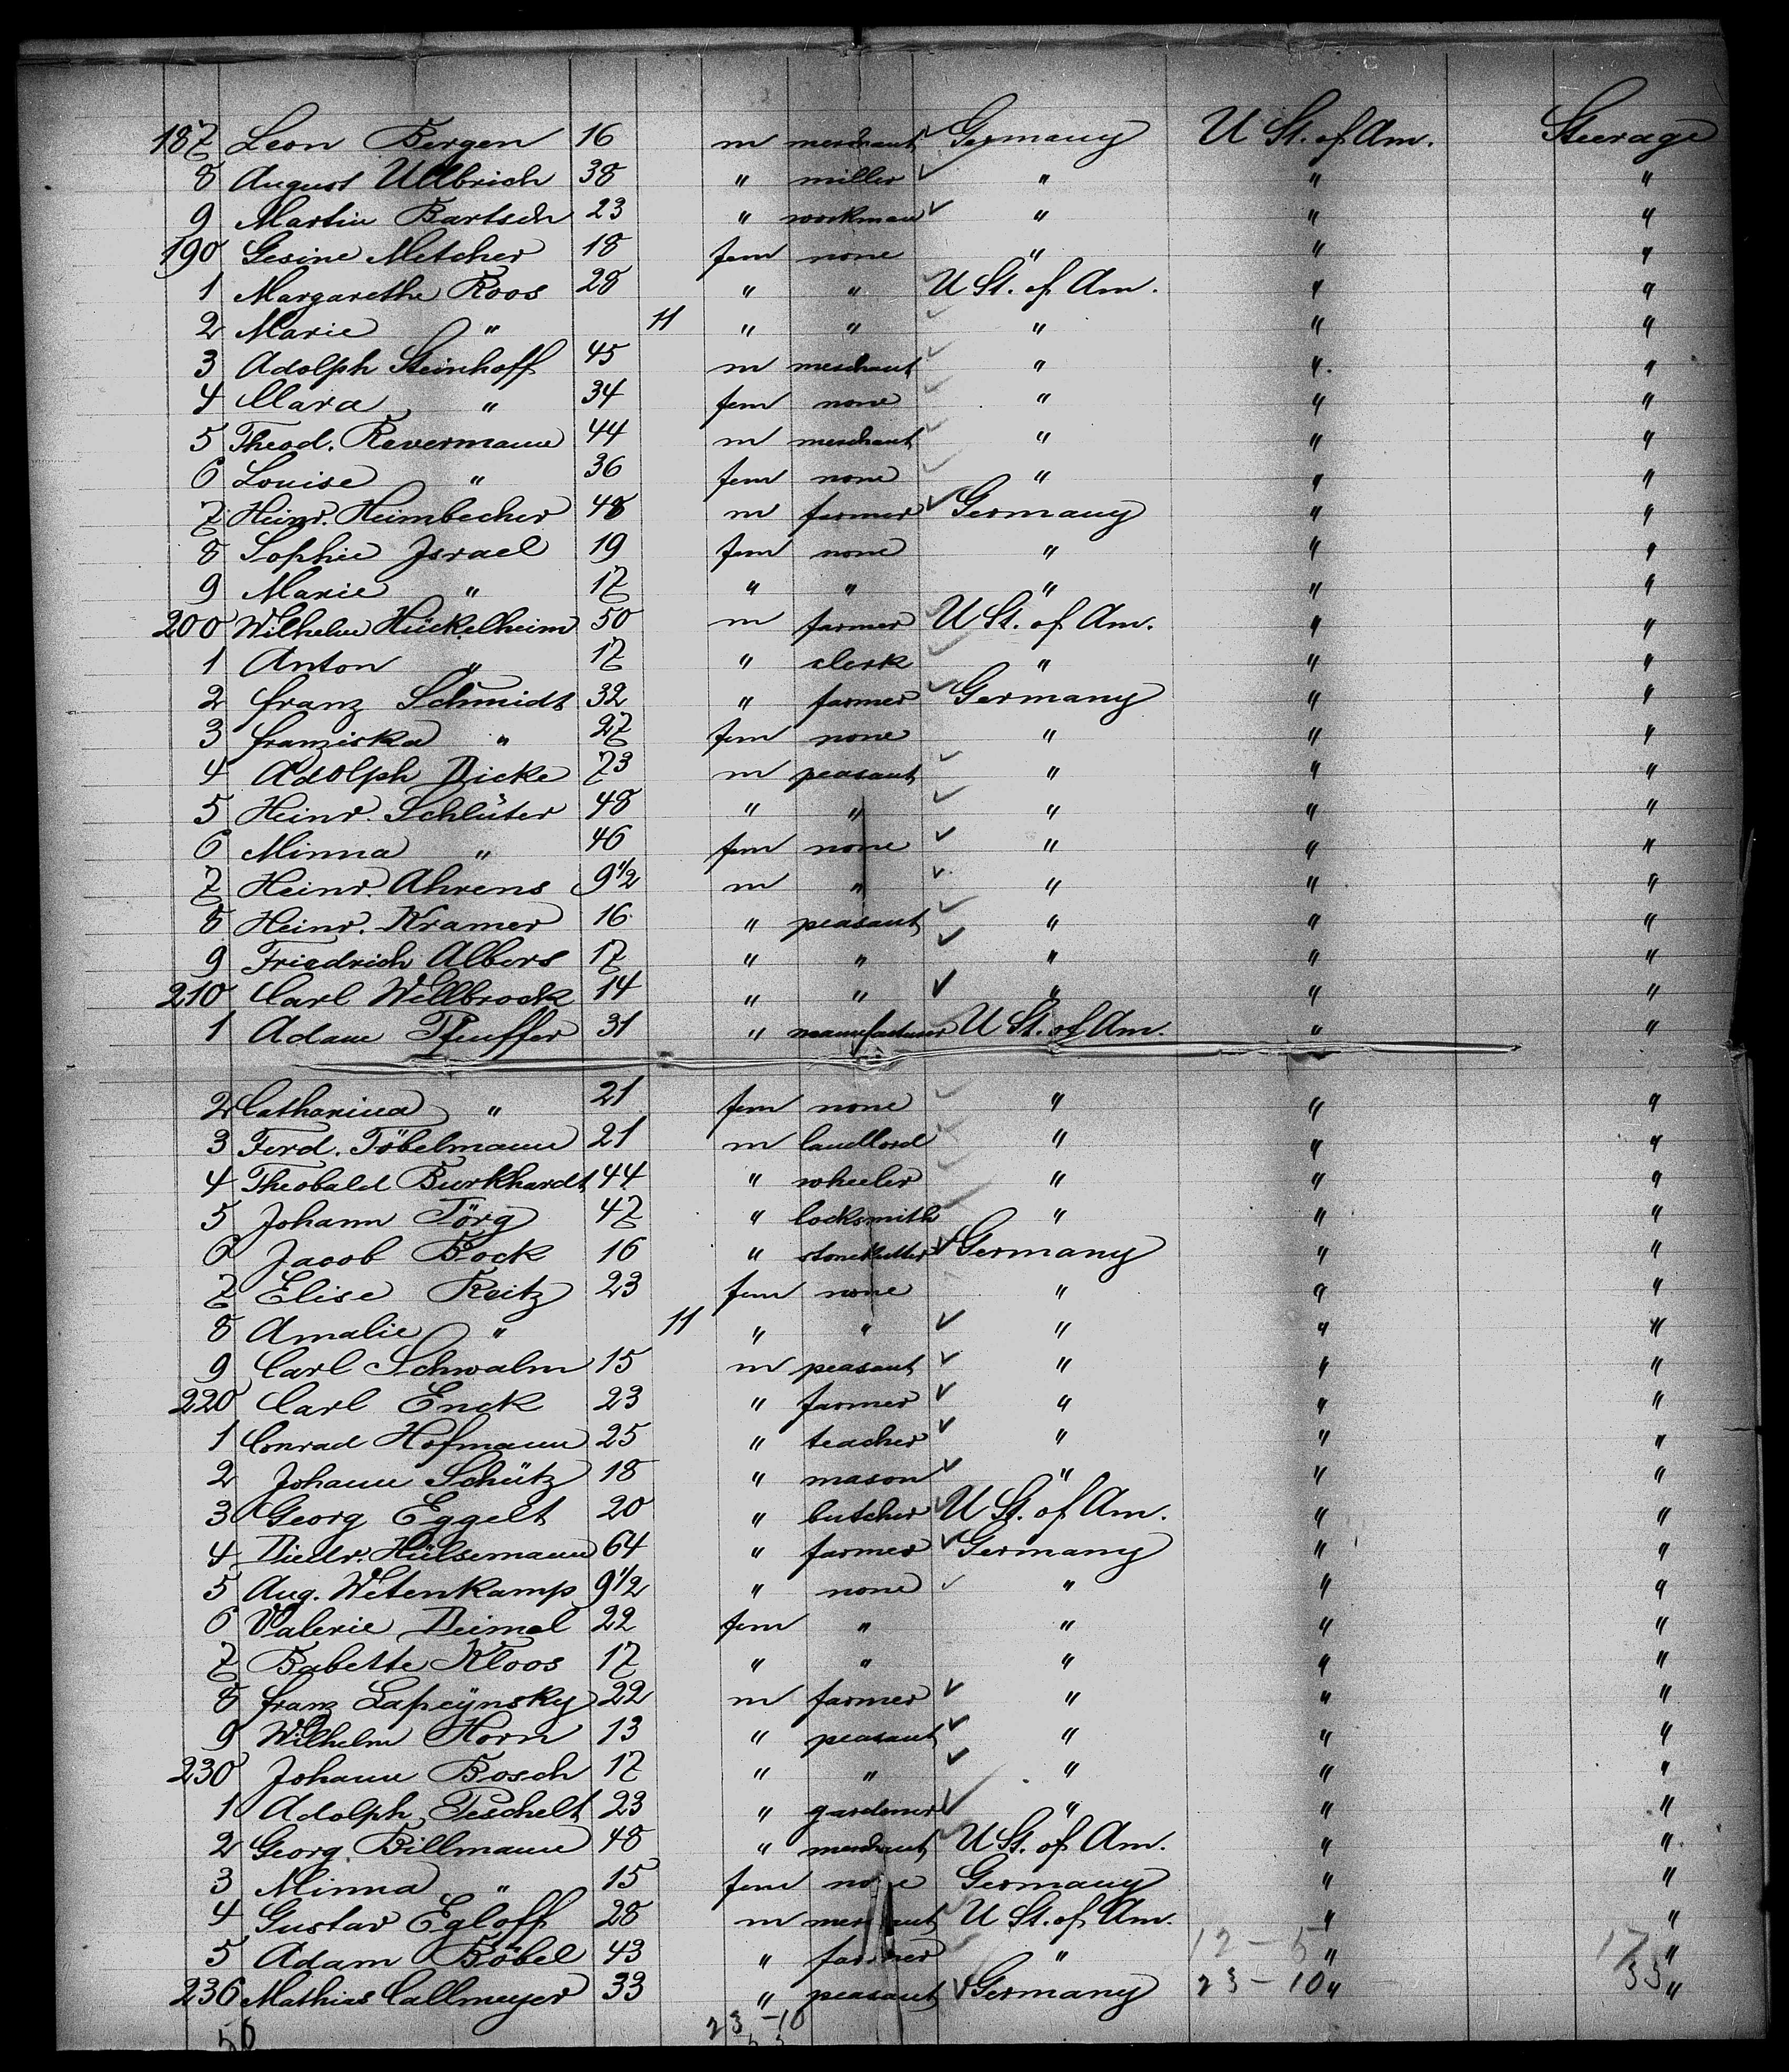 187 Leon Bergen 16 m merchant Germany U St. of Am. Steerage
8 August Ullbrich 38 " miller " " "
9 Martin Bartsch 23 " workman " " "
190 Gesine Metcher 18 fem none " " "
1 Margarethe Roos 28 " " U St. of Am. " "
2 Marie " 11 " " " " "
3 Adolph Steinhoff 45 m merchant " " "
4 Clara " 34 fem none " " "
5 Theod. Revermann 44 m merchant " " "
6 Louise " 36 fem none " " "
7 Heinr. Heimbecher 48 m farmer Germany " "
8 Sophie Israel 19 fem none " " "
9 Marie " 17 " " " " "
200 Wilhelm Hückelheim 50 m farmer U St. of Am. " "
1 Anton " 17 " clerk " " "
2 Franz Schmidt 32 " farmer Germany " "
3 Franziska " 27 fem none " " "
4 Adolph Dicke 73 m peasant " " "
5 Heinr. Schlüter 48 " " " " "
6 Minna " 46 fem none " " "
7 Heinr. Ahrens 9 1/2 m " " " "
8 Heinr. Kramer 16 " peasant " " "
9 Friedrich Albers 17 " " " " "
210 Carl Wellbrock 14 " " " " "
1 Adam Pfeuffer 31 " manufacturer U St. of Am. " "
2 Catharina " 21 fem none " " "
3 Ferd. Töbelmann 21 m landlord " " "
4 Theobald Burkhardt 44 " wheeler " " "
5 Johann Törg 47 " locksmith " " "
6 Jacob Bock 16 " stonekutter Germany " "
7 Elise Reitz 23 fem none " " "
8 Amalie " 11 " " " " "
9 Carl Schwalm 15 m peasant " " "
220 Carl Enck 23 " farmer " " "
1 Conrad Hofmann 25 " teacher " " "
2 Johann Schütz 18 " mason " " "
3 Georg Eggelt 20 " butcher U St. of Am. " "
4 Diedr. Hülsemann 64 " farmer Germany " "
5 Aug. Wetenkamp 9 1/2 " none " " "
6 Valerie Deimel 22 fem " " " "
7 Babette Kloos 17 " " " " "
8 Franz Lapcÿnsky 22 m farmer " " "
9 Wilhelm Horn 13 " peasant " " "
230 Johann Bosch 17 " " " " "
1 Adolph Peschelt 23 " gardener " " "
2 Georg Billmann 48 " merchant U St. of Am. " "
3 Minna " 15 fem none Germany " "
4 Gustav Egloff 28 m merchant U St. of Am. " "
5 Adam Böbel 43 " farmer " 12 - 5 " 17 "
236 Mathias Callmeyer 33 " peasant Germany 23 - 10 " 33 "
50 23 - 10